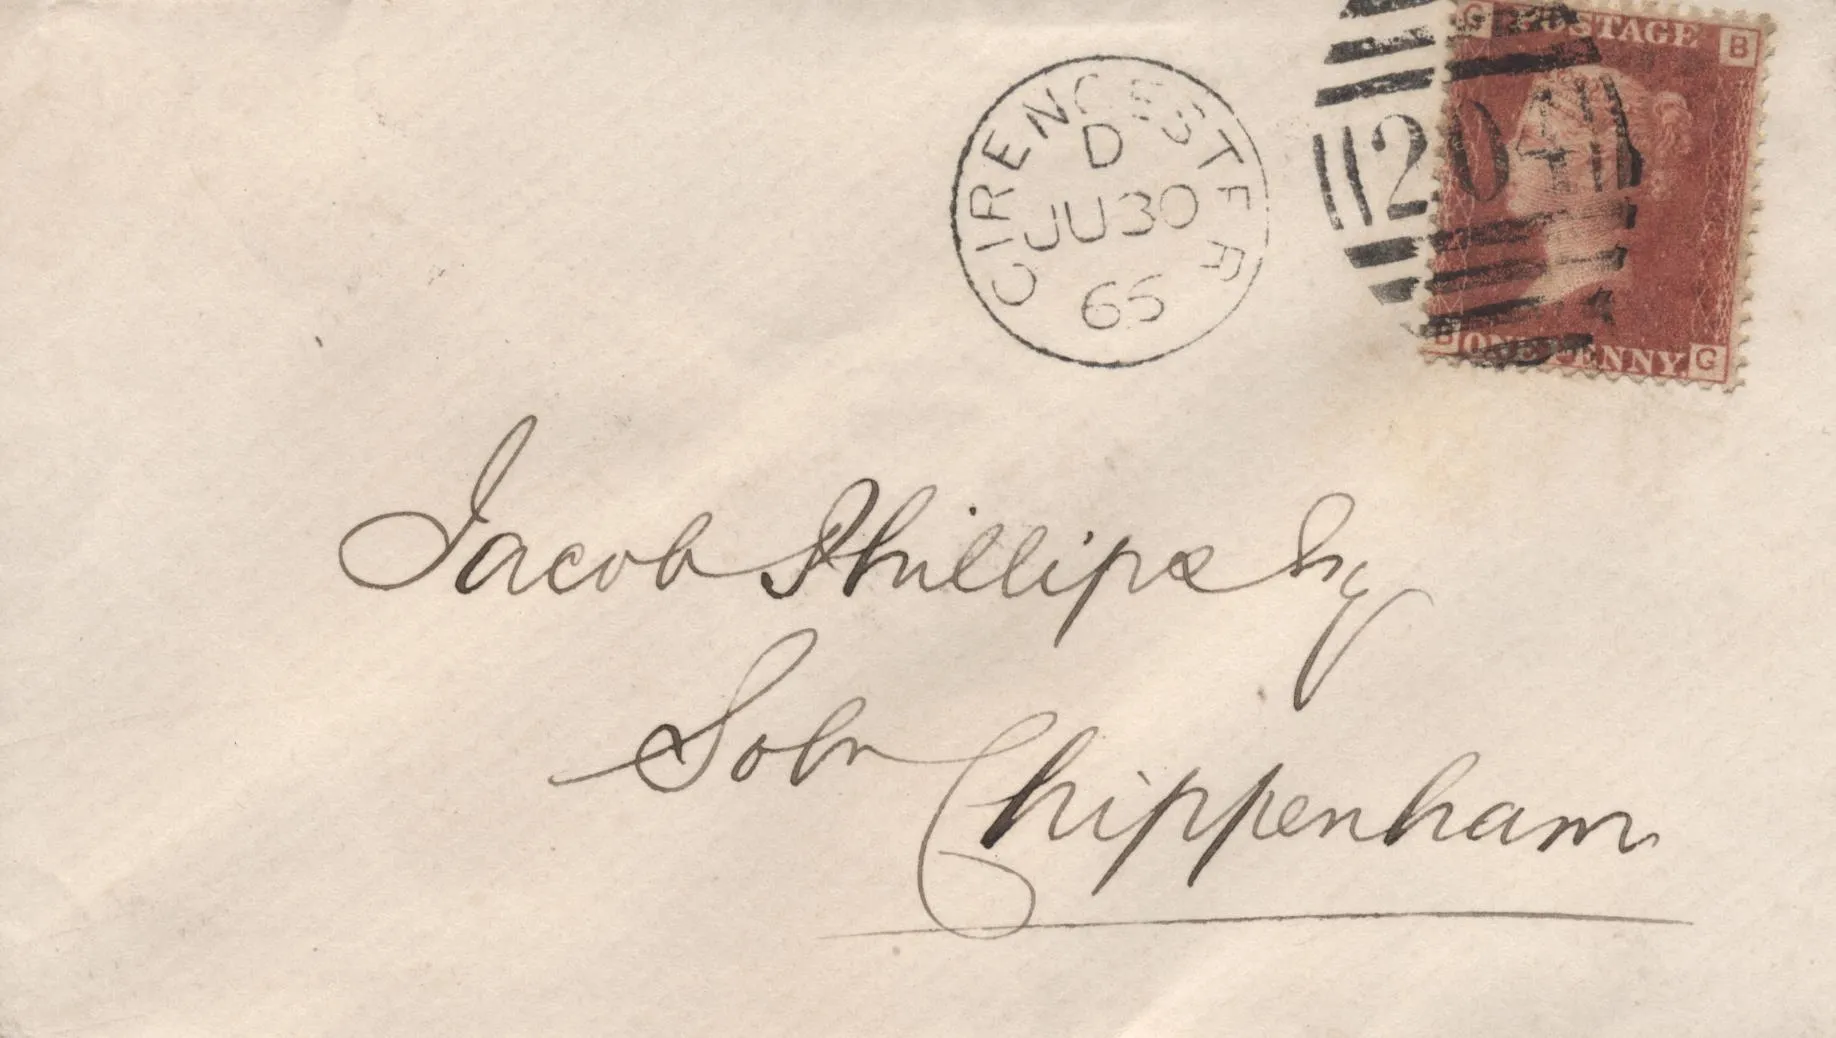 G POSTAGE B
CIRENCESTER
D
JU 30
65
204
B ONE PENNY. G
Jacob Phillips Esq
Solr Chippenham